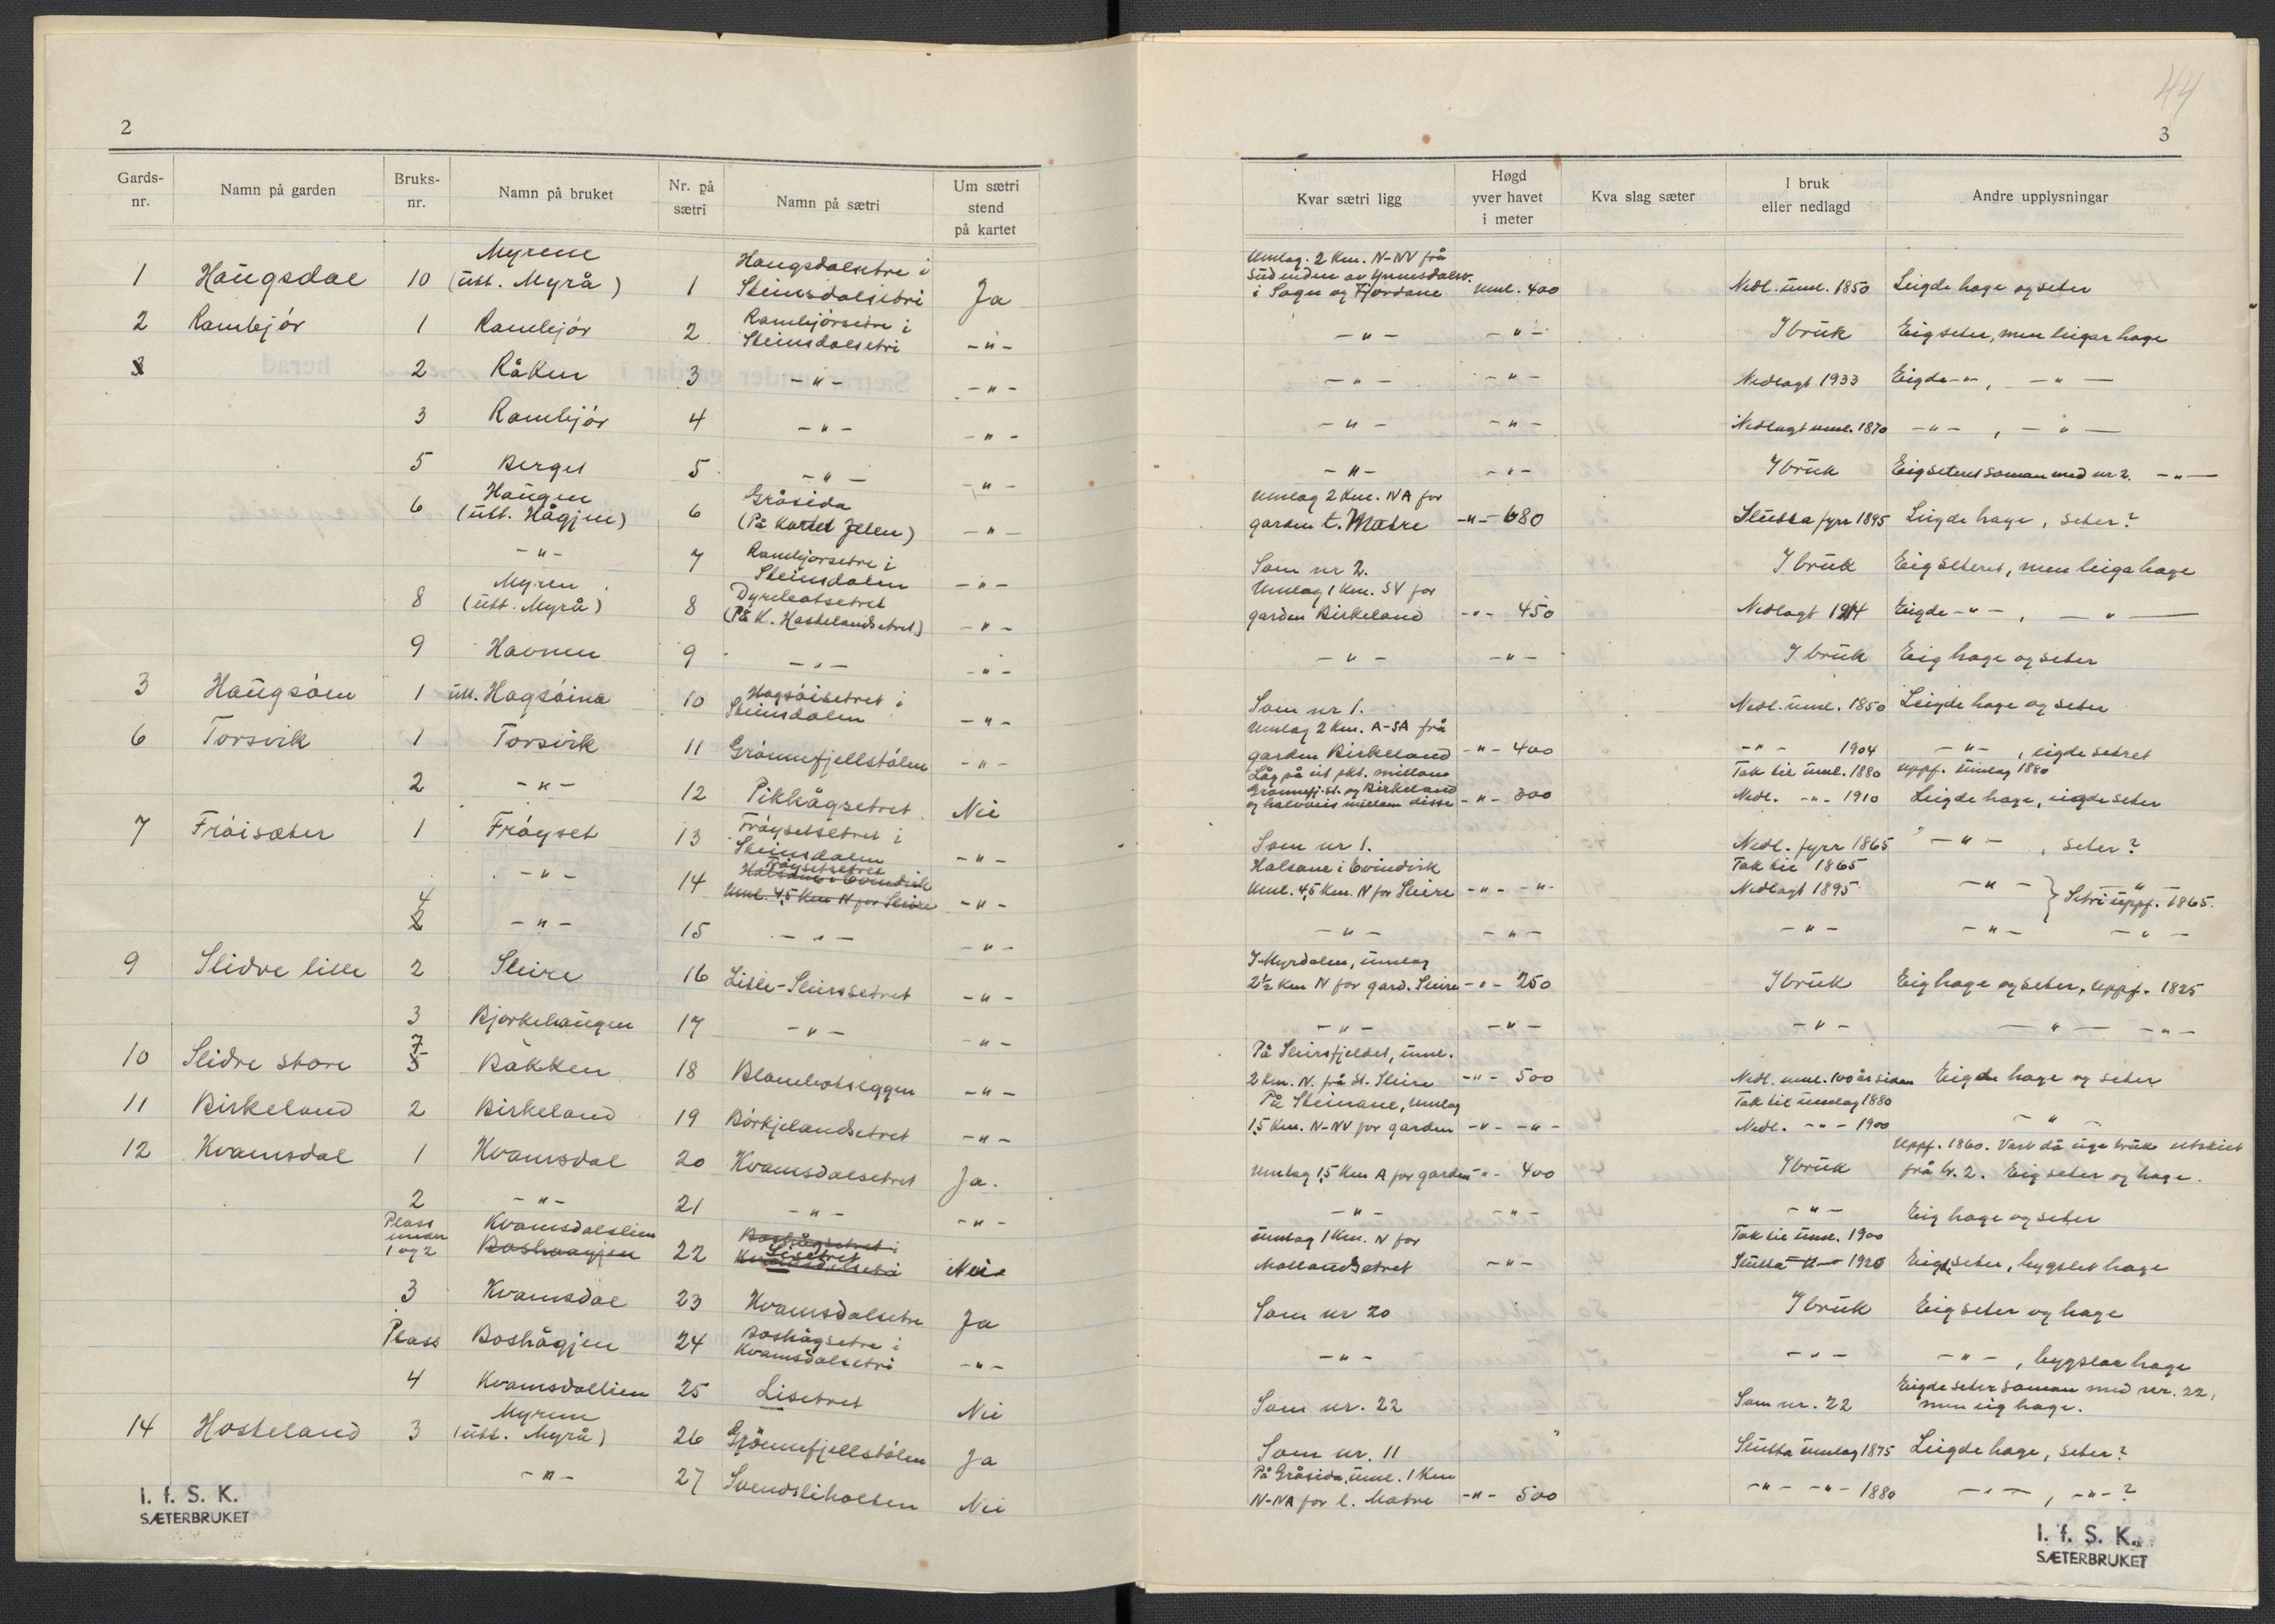 2
Gards-nr. Namn på garden Bruks-nr. Namn på bruket Nr. på sætri Namn på sætri Um sætri stend på kartet
1 Haugsdal 10 Myrene (utt. Myrå) 1 Haugsdalsetre i Steinsdalsetri Ja
2 Rambjör 1 Rambjör 2 Rambjörsetre i Steinsdalsetri -"-
3 2 Råken 3 -"- -"-
3 Rambjör 4 -"- -"-
5 Berget 5 -"- -"-
6 Haugen (utt. Hågjen) 6 Gråsida (På kartet Jelen) -"-
-"- 7 Rambjorsetre i Steinsdalen -"-
8 Myren (utt. Myrå) 8 Dyrelotsetret (På K. Hostelandsetret) -"-
9 Havnen 9 -"- -"-
3 Haugsöen 1 utt. Hagsöina 10 Hagsöisetret i Steinsdalen -"-
6 Torsvik 1 Torsvik 11 Grönnefjellstölen -"-
2 -"- 12 Pikhågsetret Nei
7 Fröisæter 1 Fröyset 13 Fröysetsetret i Steinsdalen -"-
-"- 14 Fröysetsetret Halsane i Evindvik Uml. 4,5 Km N for Sleire -"-
4 2 -"- 15 -"- -"-
9 Slidre lille 2 Sleire 16 Lisle-Sleirssetret -"-
3 Bjorkehaugen 17 -"- -"-
10 Slidre store 7 5 Bakken 18 Blomhotseggen -"-
11 Birkeland 2 Birkeland 19 Börkjelandsetret -"-
12 Kvamsdal 1 Kvamsdal 20 Kvamsdalsetret Ja.
2 -"- 21 -"- -"-
Plass under 1 og 2 Kvamsdalslien Boshaugjen 22 Boshågsetret i Kvamsdalsetri Lisetret Nei
3 Kvamsdal 23 Kvamsdalsetre Ja
Plass Boshågjen 24 Boshågsetre i Kvamsdalsetri -"-
4 Kvamsdallien 25 Lisetret Nei
14 Hosteland 3 Myrene (utt. Myrå) 26 Grönnefjellstölen Ja
-"- 27 Svendsliholten Nei
I. f. S. K.
SÆTERBRUKET
44
3
Kvar sætri ligg Høgd yver havet i meter Kva slag sæter I bruk eller nedlagd Andre upplysningar
Umlag. 2 Km. N-NV frå Sudenden av Ynnesdalsv. i Sogn og Fjordane uml. 400 Nedl. uml. 1850 Leigde hage og seter
-"- -"- I bruk Eig seter, men leigar hage
-"- -"- Nedlagt 1933 Eigde -"-, -"-
-"- -"- Nedlagt uml. 1870 -"-, -"-
-"- -"- I bruk Eig seteret soman med nr. 2. -"-
Umlag 2 Km. NA for garden t. Matre -"- 680 Slutta fyrr 1895 Leigde hage, seter?
Som nr 2. I bruk Eig seteret, men leiga hage
Umlag 1 Km. SV for garden Birkeland -"- 450 Nedlagt 1914 Eigde -"-, -"-
-"- -"- I bruk Eig hage og seter
Som nr 1. Nedl. uml. 1850 Leigde hage og seter
Umlag 2 Km. A-SA frå garden Birkeland -"- 400 -"- 1904 -"-, eigde setret
Låg på eit pkt. millom Grönnefj.st. og Birkeland og halvveis millom disse -"- 300 Tok til uml. 1880 Nedl. -"- 1910 uppf. umlag 1880 Leigde hage, eigde seter
Som nr 1. Nedl. fyrr 1865 -"-, seter?
Halsane i Evindvik Uml. 4,5 Km. N for Sleire -"- -"- Tok til 1865 Nedlagt 1895 -"- } -"- Setri uppf. 1865.
-"- -"- -"- -"- -"-
I Myrdalen, umlag 2½ Km N for gard. Sleire -"- 250 I bruk Eig hage og seter, uppf. 1825
-"- -"- -"- -"- -"-
På Sleirsfjeldet, uml. 2 Km. N. frå St. Sleire -"- 500 Nedl. uml. 100 år sidan Eigde hage og seter
På Steinane, umlag 1,5 Km. N-NV for garden -"- -"- Tok til umlag 1880 Nedl. -"- 1900 -"-
Umlag 1,5 Km A for garden -"- 400 I bruk Uppf. 1860. Vart då eige bruk utskilt frå br. 2. Eig seter og hage.
-"- -"- -"- Eig hage og seter
umlag 1 Km. N for Mollandsetret -"- Tok til uml. 1900 Slutta -"- 1920 Eigde seter, bygslet hage
Som nr 20 I bruk Eig seter og hage
-"- -"- -"-, bygslar hage
Som nr. 22 Som nr. 22 Eigde seter soman med nr. 22, men eig hage.
Som nr. 11 Slutta umlag 1875 Leigde hage, seter?
På Gråsida, uml. 1 Km N-NA for l. Matre -"- 500 -"- -"- 1880 -"-, -"-?
I. f. S. K.
SÆTERBRUKET